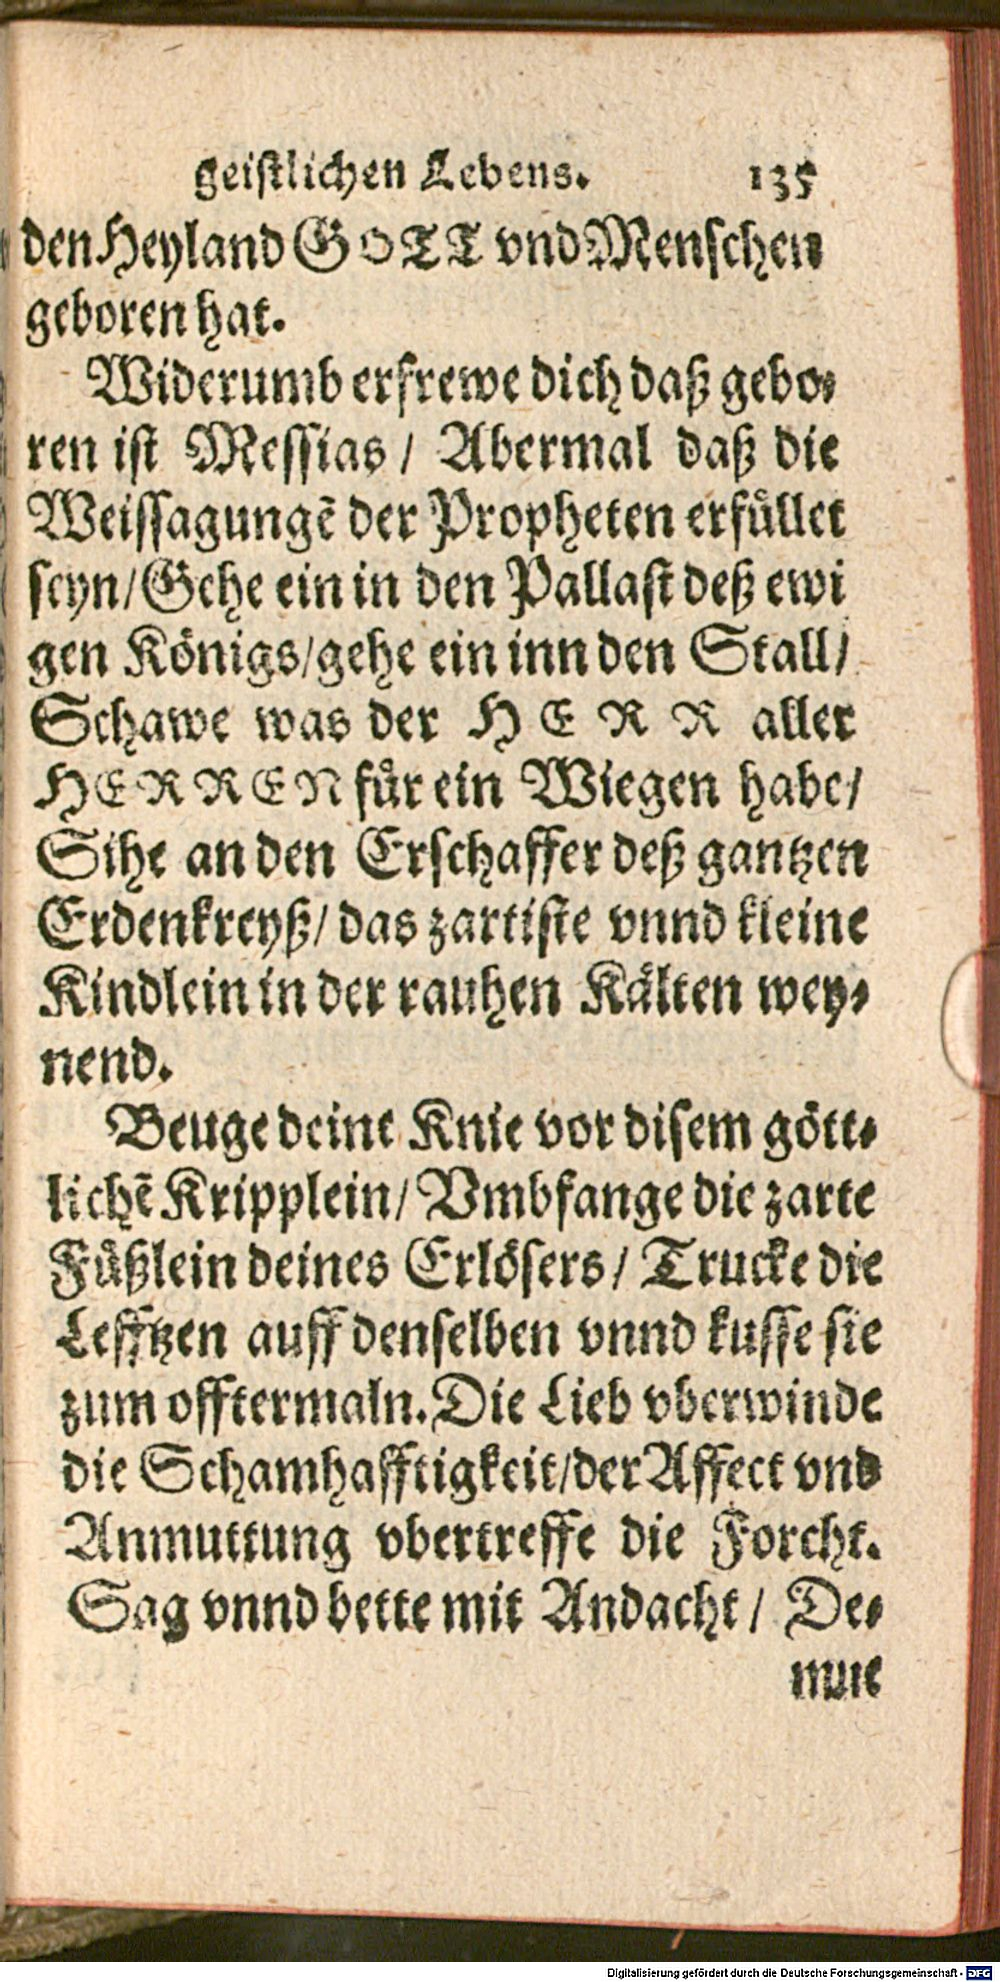 geistlichen Lebens. 135
den Heyland GOTT vnd Menschen
geboren hat.
Widerumb erfrewe dich daß gebo-
ren ist Messias / Abermal daß die
Weissagungẽ der Propheten erfüllet
seyn / Gehe ein in den Pallast deß ewi
gen Königs / gehe ein inn den Stall /
Schawe was der HERR aller
HERREN für ein Wiegen habe /
Sihe an den Erschaffer deß gantzen
Erdenkreyß / das zartiste vnnd kleine
Kindlein in der rauhen Kälten wey-
nend.
Beuge deine Knie vor disem gött-
lichẽ Kripplein / Vmbfange die zarte
Füßlein deines Erlösers / Trucke die
Lefftzen auff denselben vnnd kusse sie
zum offtermaln. Die Lieb vberwinde
die Schamhafftigkeit / der Affect vnd
Anmuttung vbertreffe die Forcht.
Sag vnnd bette mit Andacht / De-
mut
Digitalisierung gefördert durch die Deutsche Forschungsgemeinschaft - DFG